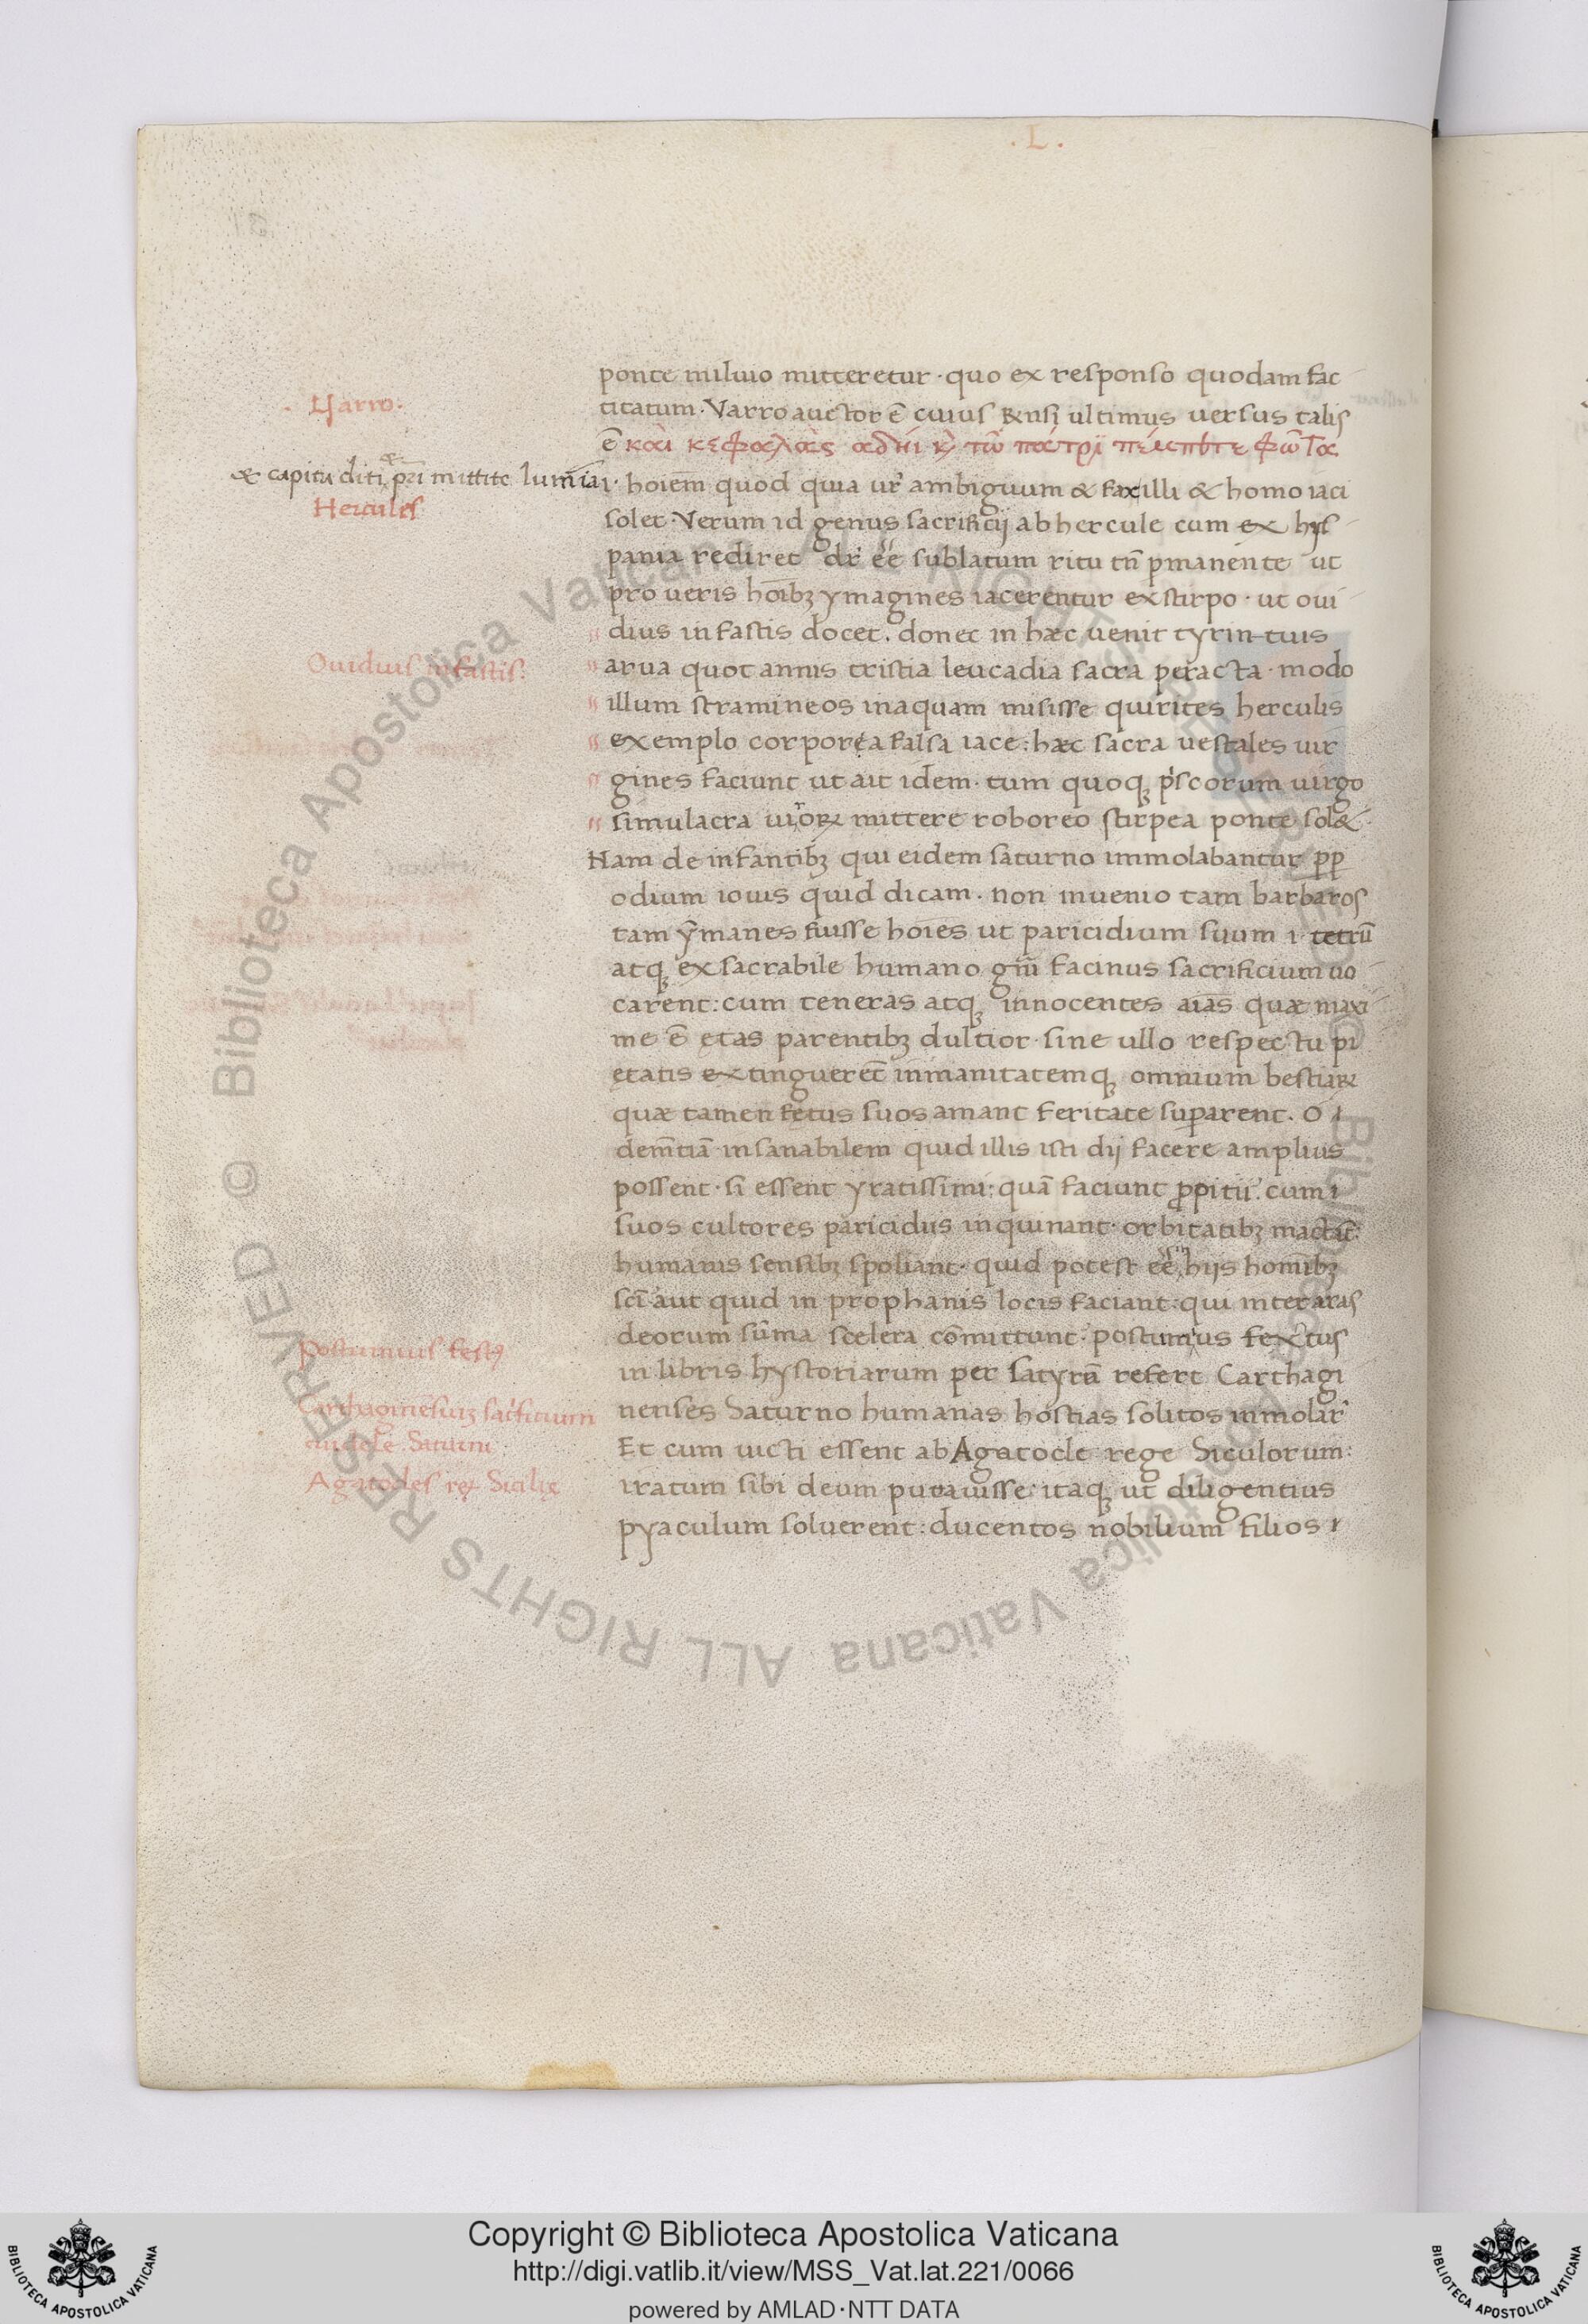 . L .
ponte miluio mitteretur · quo ex responso quodam fac
titatum · Varro auctor ē cuius &nsi ultimus uersus talis
ē καὶ κεφαλὰς ἀδηι κ̀ τῶ πατρὶ πέμπετε φῶτα
i · hoiem quod quia ur̄ ambiguum & faxilli & homo iaci
solet · Verum id genus sacrificij ab hercule cum ex hys
pania rediret dr̄ eē sublatum ritu tn̄ pmanente ut
pro ueris hoībꝫ ymagines iacerentur ex stirpo · ut oui
dius in fastis docet . donec in hæc uenit tyrin tius
arua quot annis tristia leucadia sacra peracta · modo
illum stramineos in aquam misisse quirites herculis
exemplo corporęa falsa iace : hæc sacra uestales uir
gines faciunt ut ait idem · tum quoqꝫ p'scorum uirgo
simulacra uiroꝝ mittere roboreo stirpea ponte sol&
Nam de infantibꝫ qui eidem saturno immolabantur pp
odium iouis quid dicam · non inuenio tam barbaros
tam ȳmanes fuisse hoies ut paricidium suum i · tetrū
atqꝫ exsacrabile humano gn̄i facinus sacrificium uo
carent : cum teneras atqꝫ innocentes aīas quæ maxi
me ē ętas parentibꝫ dultior · sine ullo respectu pi
etatis extinguerēt inmanitatemqꝫ omnium bestiaꝝ
quæ tamen fętus suos amant feritate superarent . O
demn̄tiā insanabilem quid illis isti dij facere amplius
possent · si essent yratissimi : quā faciunt ꝓpitii . cum
suos cultores paricidiis inquinant · orbitatibꝫ mactāt :
humanis sensibꝫ spoliant · quid potest eē hijs homībꝫ
scī aut quid in prophanis locis faciant : qui inter aras
deorum sūma scelera cōmittunt · postumius fextus
in libris hystoriarum per satyrā refert Carthagi
nenses Saturno humanas hostias solitos inmolar̄
Et cum uicti essent ab Agatocle rege Siculorum :
iratum sibi deum putauisse : itaqꝫ ut diligentius
pyaculum soluerent : ducentos nobilium filios
· Varro ·
& capita diti & pr̄i mittite lumīa
Hercules
Ouidius in fastis :
Postumius festꝰ
Carthaginēsiuꝫ sac'ficium
Agatocles rex Sicilię
Copyright © Biblioteca Apostolica Vaticana
http://digi.vatlib.it/view/MSS_Vat.lat.221/0066
powered by AMLAD·NTT DATA
BIBLIOTECA APOSTOLICA VATICANA
BIBLIOTECA APOSTOLICA VATICANA
© Biblioteca Apostolica Vaticana ALL RIGHTS RESERVED